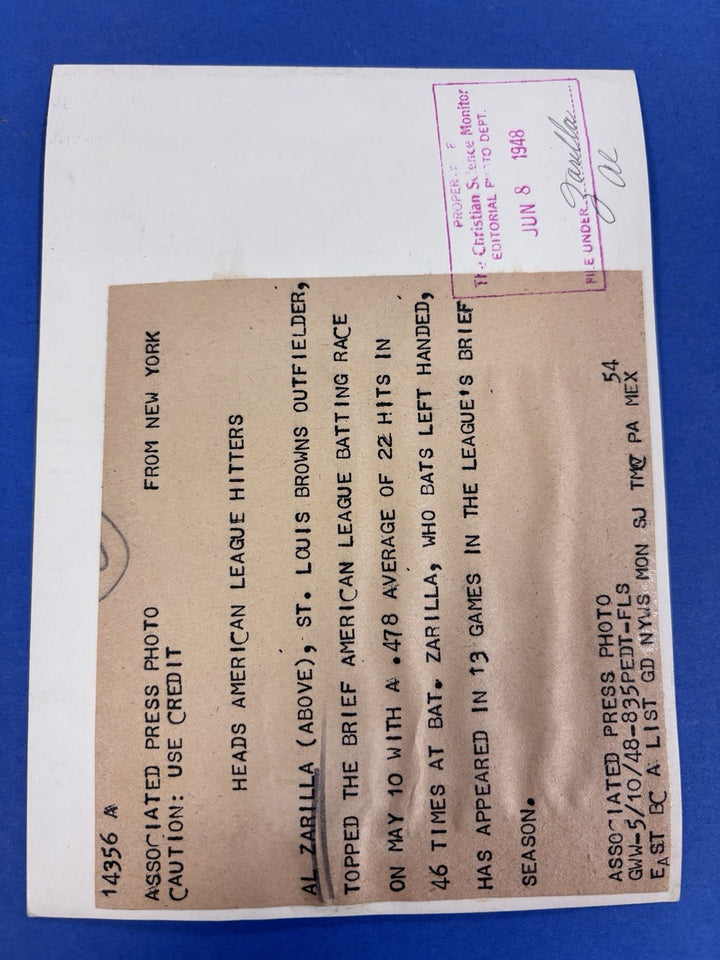 PROPER
The Christian Science Monitor
EDITORIAL PHOTO DEPT.
JUN 8 1948
FILE UNDER Zarilla
Al
14356 A
ASSOCIATED PRESS PHOTO FROM NEW YORK
CAUTION: USE CREDIT
HEADS AMERICAN LEAGUE HITTERS
AL ZARILLA (ABOVE), ST. LOUIS BROWNS OUTFIELDER,
TOPPED THE BRIEF AMERICAN LEAGUE BATTING RACE
ON MAY 10 WITH A .478 AVERAGE OF 22 HITS IN
46 TIMES AT BAT. ZARILLA, WHO BATS LEFT HANDED,
HAS APPEARED IN 13 GAMES IN THE LEAGUE'S BRIEF
SEASON.
ASSOCIATED PRESS PHOTO 54
GWW-5/10/48-835PEDT-FLS
EAST BC A LIST GD NYWS MON SJ TMC PA MEX